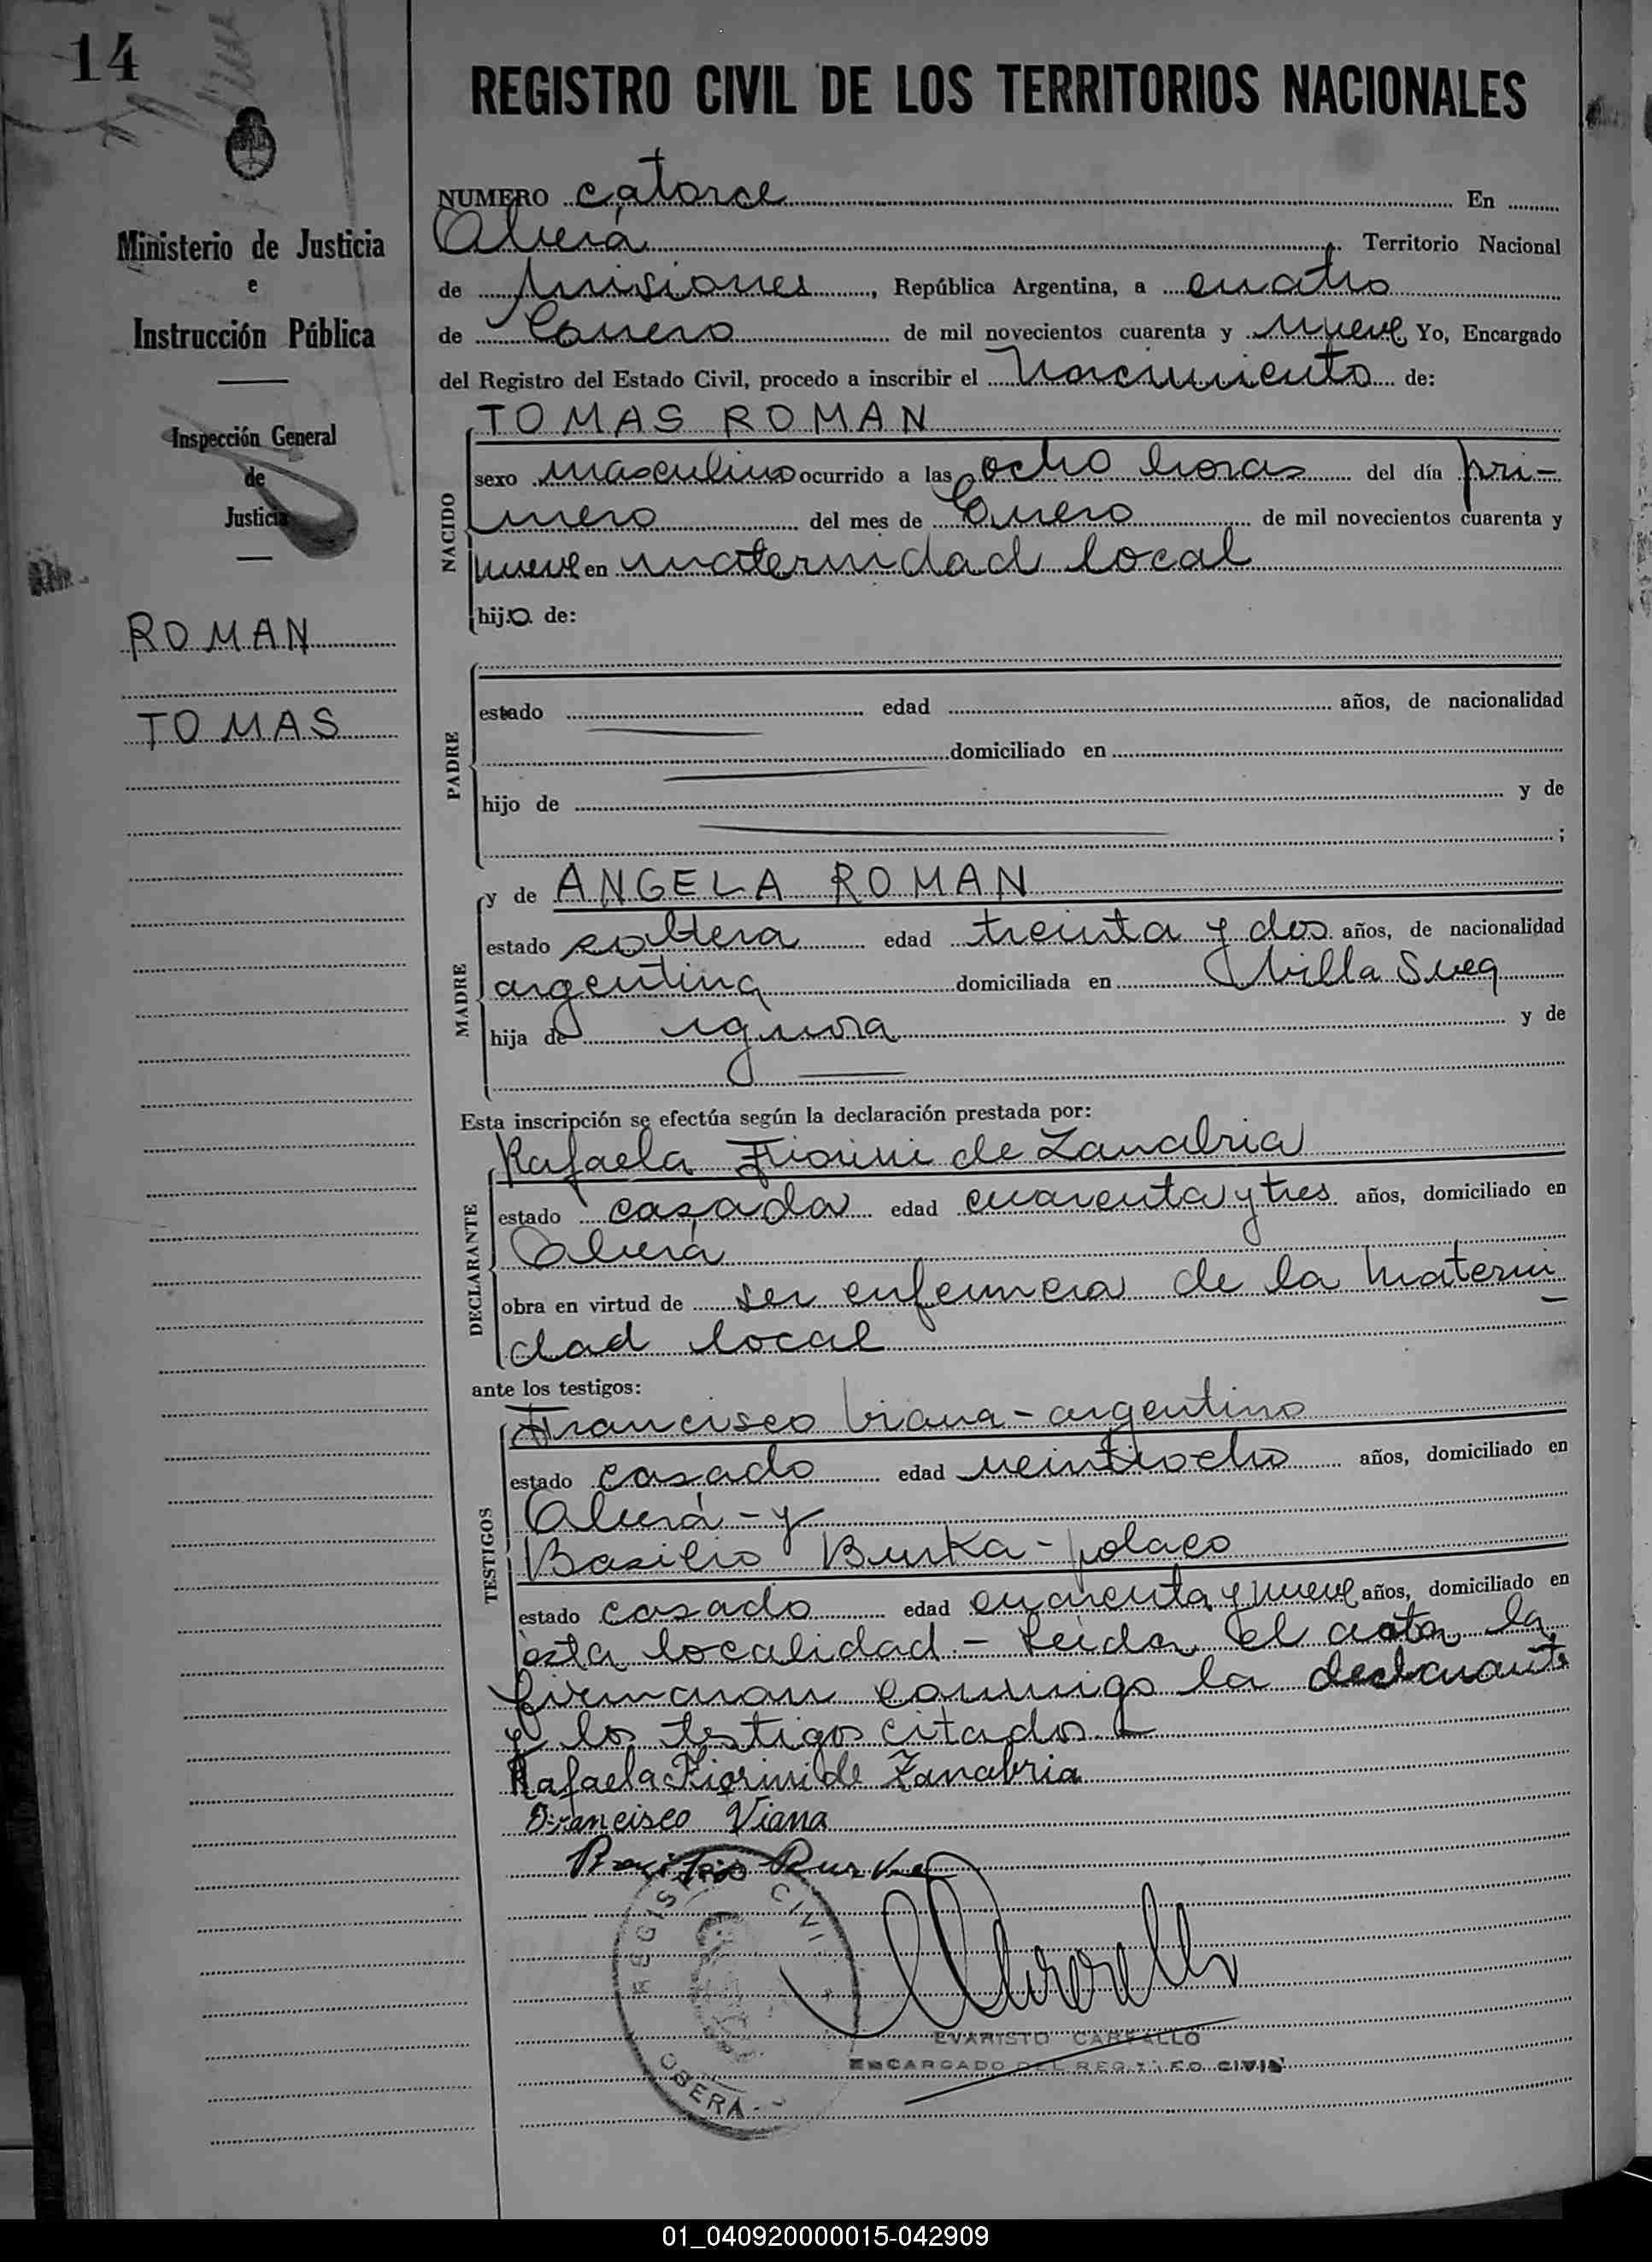 14
REGISTRO CIVIL DE LOS TERRITORIOS NACIONALES
Ministerio de Justicia
e
Instrucción Pública
Inspección General
de
Justicia
ROMAN
TOMAS
NUMERO catorce En
Oberá Territorio Nacional
de Misiones, República Argentina, a cuatro
de Enero de mil novecientos cuarenta y nueve Yo, Encargado
del Registro del Estado Civil, procedo a inscribir el Nacimiento de:
NACIDO
TOMAS ROMAN
sexo masculino ocurrido a las ocho horas del día pri-
mero del mes de Enero de mil novecientos cuarenta y
nueve en maternidad local
hijo de:
PADRE
estado edad años, de nacionalidad
domiciliado en
hijo de y de
;
MADRE
y de ANGELA ROMAN
estado soltera edad treinta y dos años, de nacionalidad
argentina domiciliada en Villa Sueca
hija de ignora y de
Esta inscripción se efectúa según la declaración prestada por:
DECLARANTE
Rafaela Fiorini de Zanabria
estado casada edad cuarenta y tres años, domiciliado en
Oberá
obra en virtud de ser enfermera de la materni
dad local
ante los testigos:
TESTIGOS
Francisco Viana - argentino
estado casado edad veintiocho años, domiciliado en
Oberá - y
Basilio Burka - polaco
estado casado edad cuarenta y nueve años, domiciliado en
esta localidad - Leida el acta la
firmaron conmigo la declarante
y los testigos citados
Rafaela Fiorini de Zanabria
Francisco Viana
Basilio Burka
REGISTRO CIVIL
OBERÁ
EVARISTO CARVALLO
ENCARGADO DEL REGISTRO CIVIL
01_040920000015-042909